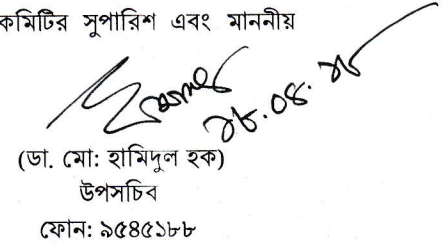 কমিটির সুপারিশ এবং মাননীয়
(ডা. মো: হামিদুল হক)
উপসচিব
ফোন: ৯৫৪৫১৮৮